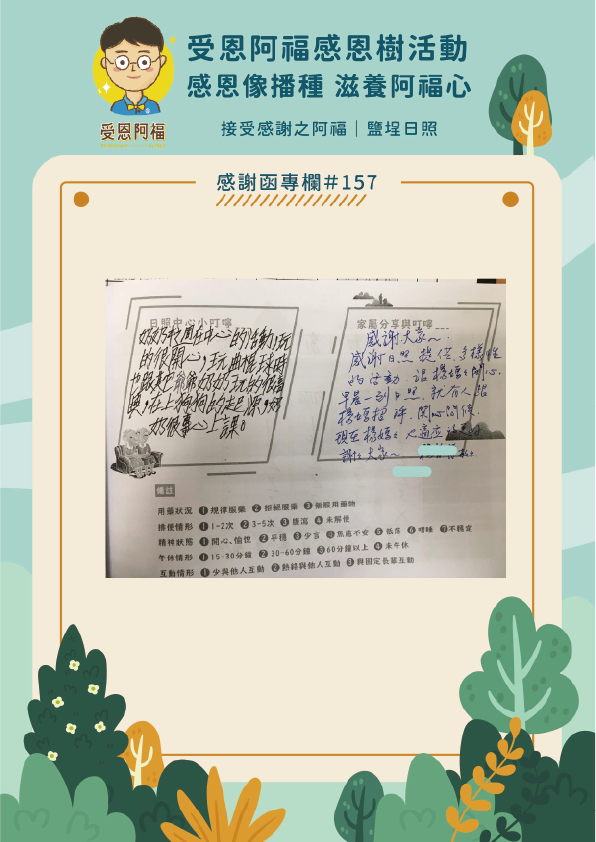 受恩阿福感恩樹活動
感恩像播種 滋養阿福心
受恩阿福
接受感謝之阿福｜鹽埕日照
感謝函專欄#157
日照中心小叮嚀
奶奶校園在中心的活動,玩
的很開心,玩曲棍球時
也跟其他爺爺奶奶玩的很高
興,在上狗狗的法足課,奶
奶很專心上課。
家屬分享與叮嚀
感謝大家~
感謝日照提供多樣性
的活動 讓楊媽媽開心.
早晨一到日照 就有人陪
楊媽招呼. 関心問候.
現在楊媽媽
謝謝大家~
備註
用藥狀況 ❶規律服藥 ❷拒絕服藥 ❸無服用藥物
排便情形 ❶1-2次 ❷3-5次 ❸腹瀉 ❹未解便
精神狀態 ❶開心、愉悅 ❷平穩 ❸少言 ❹焦慮不安 ❺低落 ❻嗜睡 ❼不穩定
午休情形 ❶15-30分鐘 ❷30-60分鐘 ❸60分鐘以上 ❹未午休
互動情形 ❶少與他人互動 ❷熱絡與他人互動 ❸與固定長輩互動